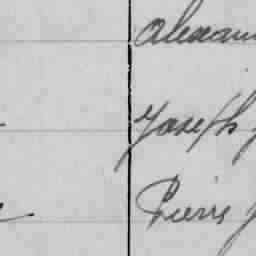 Alexan
Joseph J
Pierre J